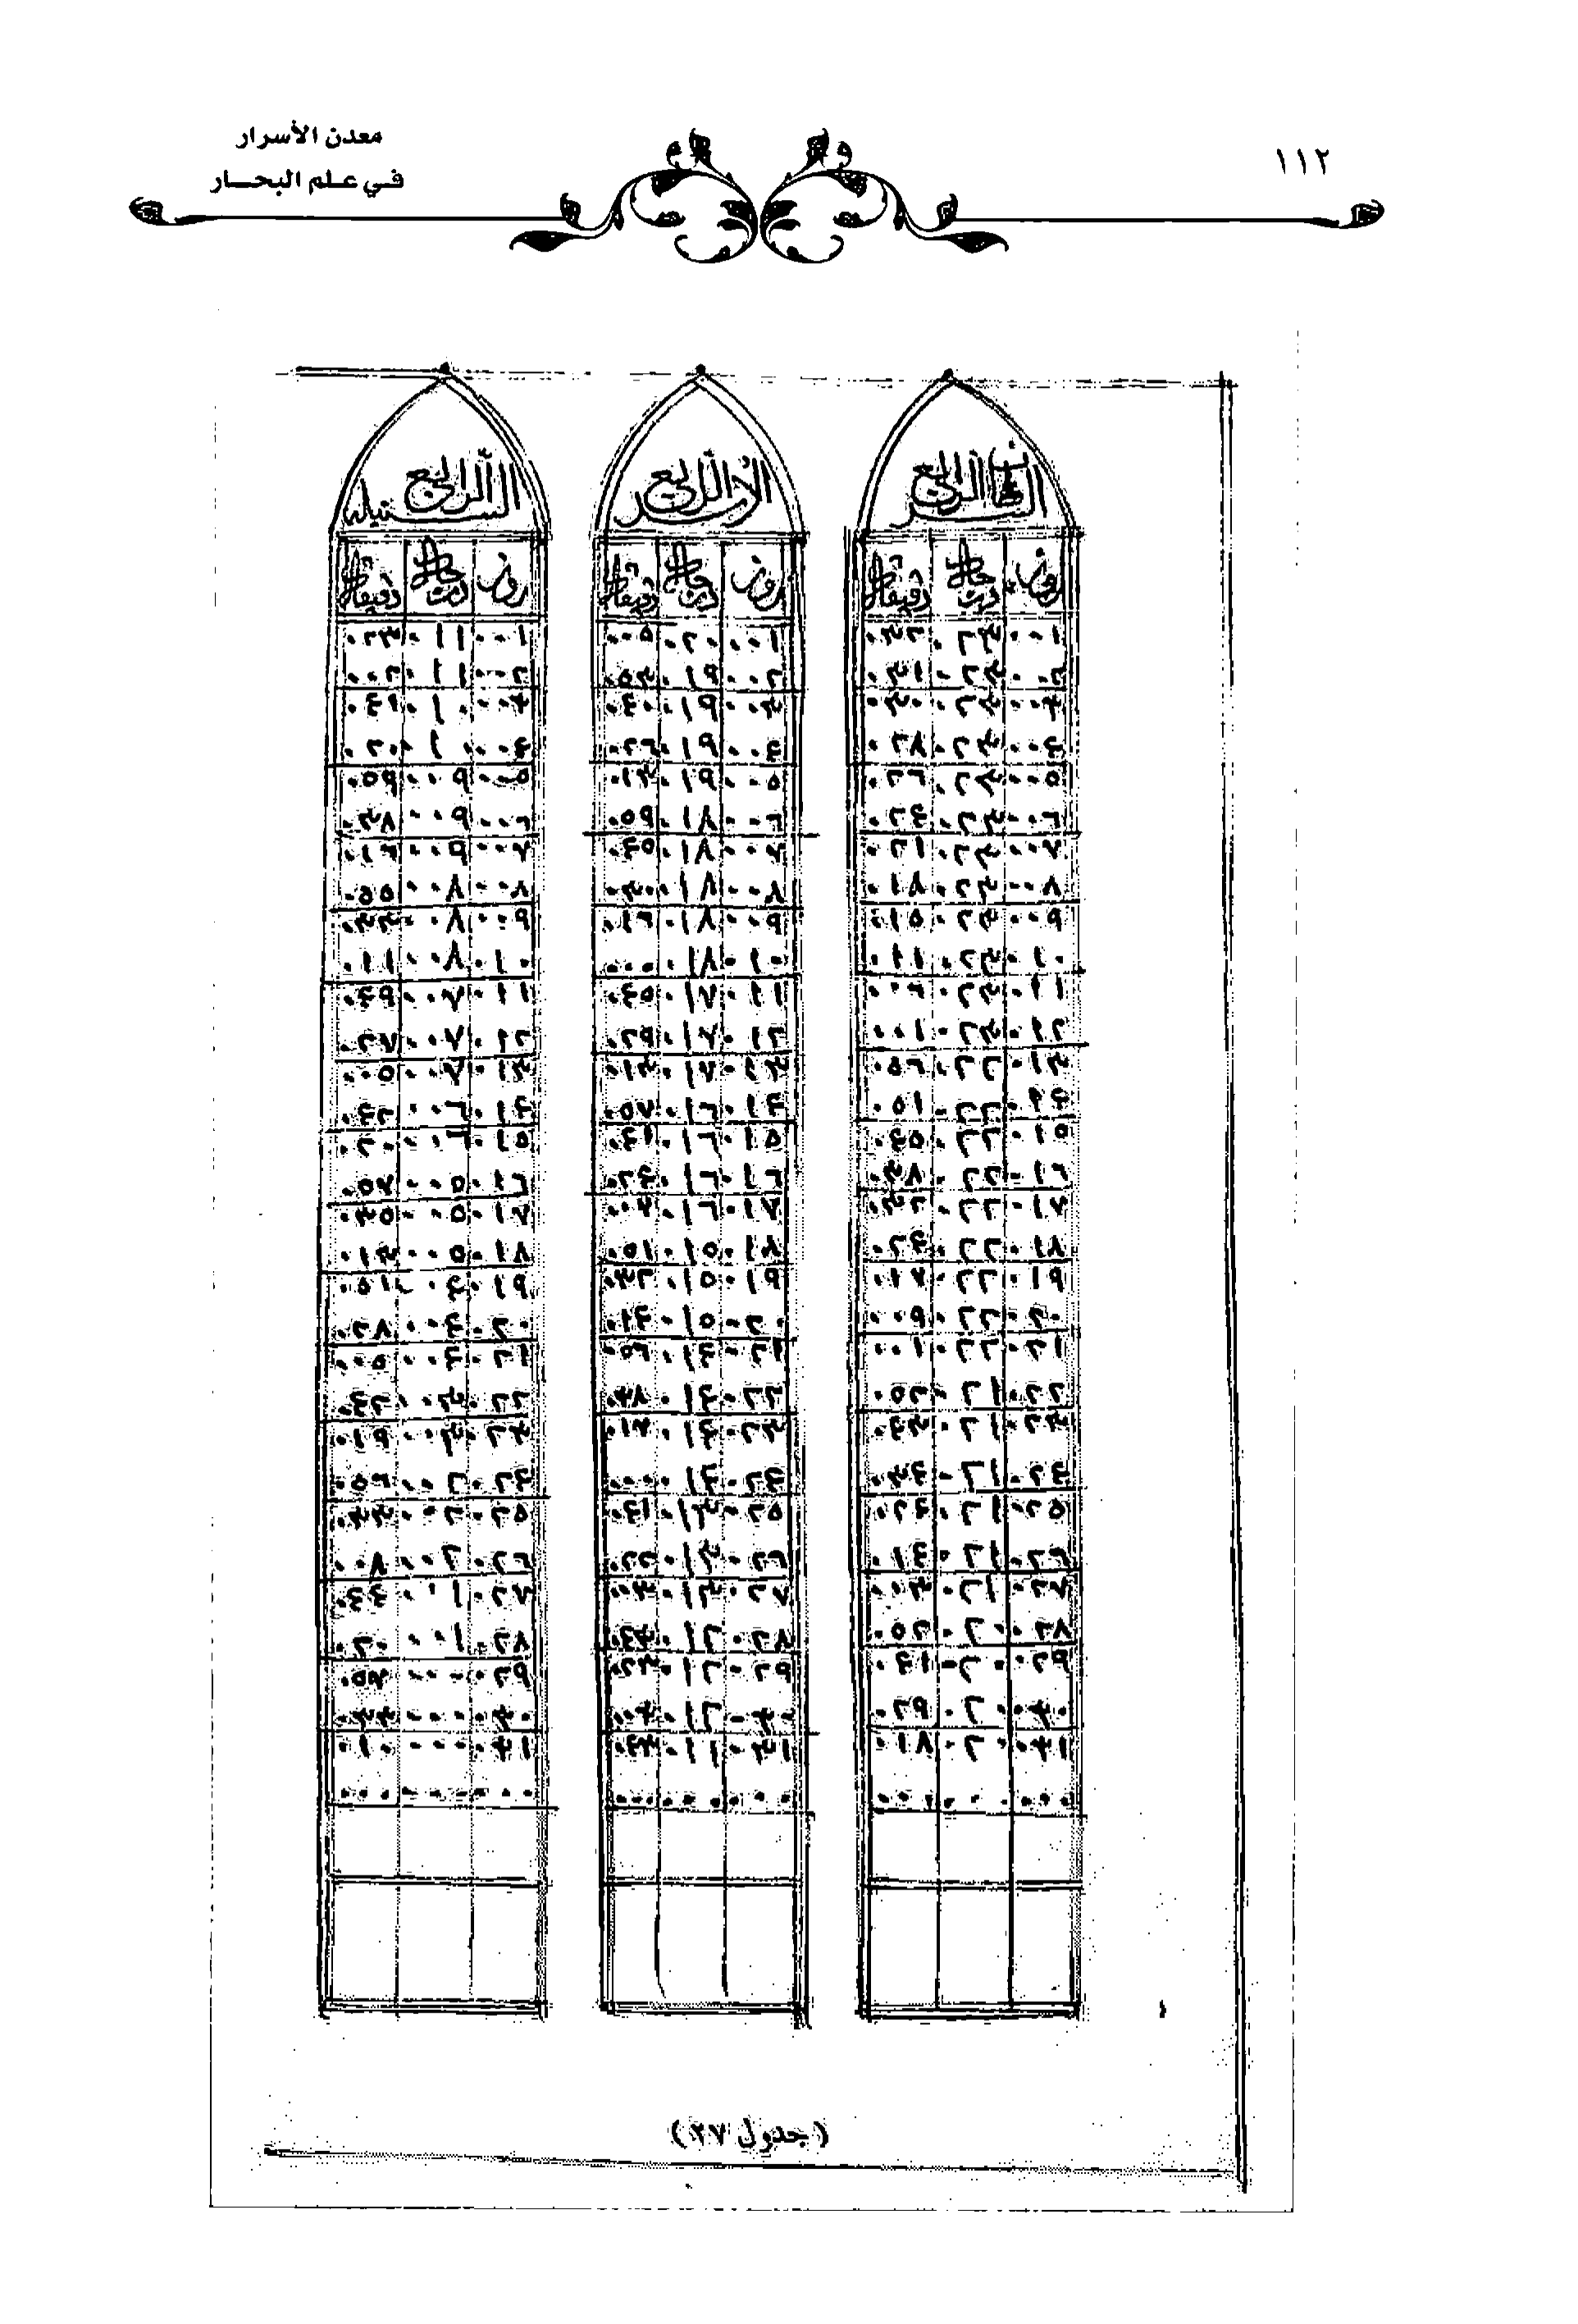 معدن الأسرار
في علم البحار
١١٢
السرطان الرابع
روز درجات دقيقات
١ ٢٣ ٣٢
٢ ٢٣ ٣١
٣ ٢٣ ٣٠
٤ ٢٣ ٢٨
٥ ٢٣ ٢٦
٦ ٢٣ ٢٤
٧ ٢٣ ٢١
٨ ٢٣ ١٨
٩ ٢٣ ١٥
١٠ ٢٣ ١١
١١ ٢٣ ٠٦
١٢ ٢٣ ٠١
١٣ ٢٢ ٥٦
١٤ ٢٢ ٥١
١٥ ٢٢ ٤٥
١٦ ٢٢ ٣٨
١٧ ٢٢ ٣٢
١٨ ٢٢ ٢٤
١٩ ٢٢ ١٧
٢٠ ٢٢ ٠٩
٢١ ٢٢ ٠١
٢٢ ٢١ ٥٢
٢٣ ٢١ ٤٣
٢٤ ٢١ ٣٤
٢٥ ٢١ ٢٤
٢٦ ٢١ ١٤
٢٧ ٢١ ٠٣
٢٨ ٢٠ ٥٢
٢٩ ٢٠ ٤١
٣٠ ٢٠ ٢٩
٣١ ٢٠ ١٨
الأسد الرابع
روز درجات دقيقات
١ ٢٠ ٠٥
٢ ١٩ ٥٣
٣ ١٩ ٤٠
٤ ١٩ ٢٦
٥ ١٩ ١٣
٦ ١٨ ٥٩
٧ ١٨ ٤٥
٨ ١٨ ٣٠
٩ ١٨ ١٦
١٠ ١٨ ٠٠
١١ ١٧ ٤٥
١٢ ١٧ ٢٩
١٣ ١٧ ١٣
١٤ ١٦ ٥٧
١٥ ١٦ ٤١
١٦ ١٦ ٢٤
١٧ ١٦ ٠٧
١٨ ١٥ ٥١
١٩ ١٥ ٣٢
٢٠ ١٥ ١٤
٢١ ١٤ ٥٦
٢٢ ١٤ ٣٨
٢٣ ١٤ ١٧
٢٤ ١٤ ٠٠
٢٥ ١٣ ٤١
٢٦ ١٣ ٢٢
٢٧ ١٣ ٠٣
٢٨ ١٢ ٤٣
٢٩ ١٢ ٢٣
٣٠ ١٢ ٠٣
٣١ ١١ ٤٣
السنبلة الرابع
روز درجات دقيقات
١ ١١ ٢٣
٢ ١١ ٠٢
٣ ١٠ ٤١
٤ ١٠ ٢٠
٥ ٩ ٥٩
٦ ٩ ٣٨
٧ ٩ ١٦
٨ ٨ ٥٥
٩ ٨ ٣٣
١٠ ٨ ١١
١١ ٧ ٤٩
١٢ ٧ ٢٧
١٣ ٧ ٠٥
١٤ ٦ ٤٢
١٥ ٦ ٢٠
١٦ ٥ ٥٧
١٧ ٥ ٣٥
١٨ ٥ ١٣
١٩ ٤ ٥١
٢٠ ٤ ٢٨
٢١ ٤ ٠٥
٢٢ ٣ ٤٢
٢٣ ٣ ١٩
٢٤ ٢ ٥٦
٢٥ ٢ ٣٣
٢٦ ٢ ٠٨
٢٧ ١ ٤٤
٢٨ ١ ٢٠
٢٩ ٠ ٥٧
٣٠ ٠ ٣٣
٣١ ٠ ١٠
(جدول ٢٧)